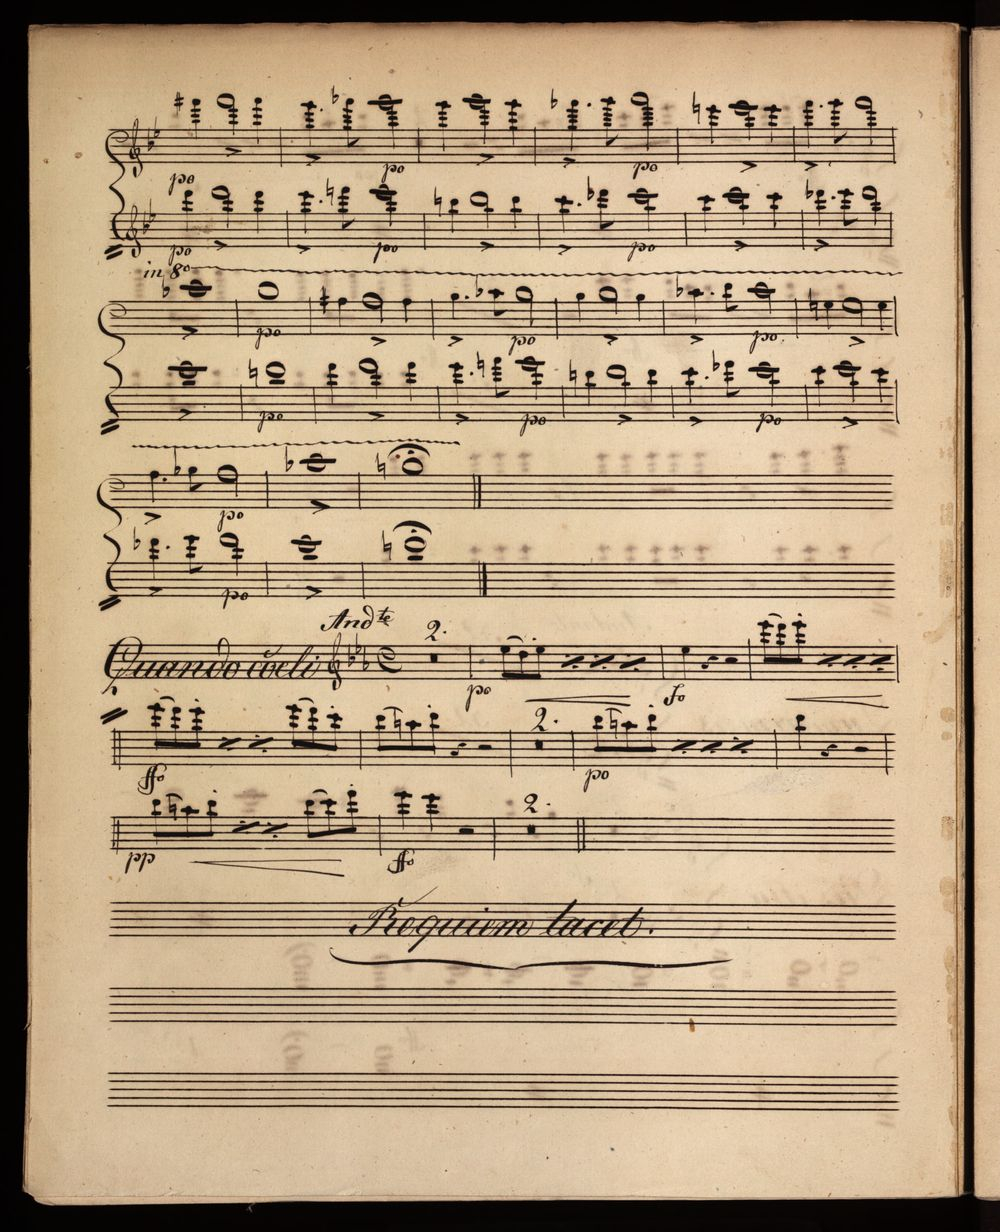 po po po
po po po
in 8o
po po po.
po po po
po
po
Andte
Quando cœli 2. po fo
ffo 2. po
pp ffo 2.
Requiem tacet.